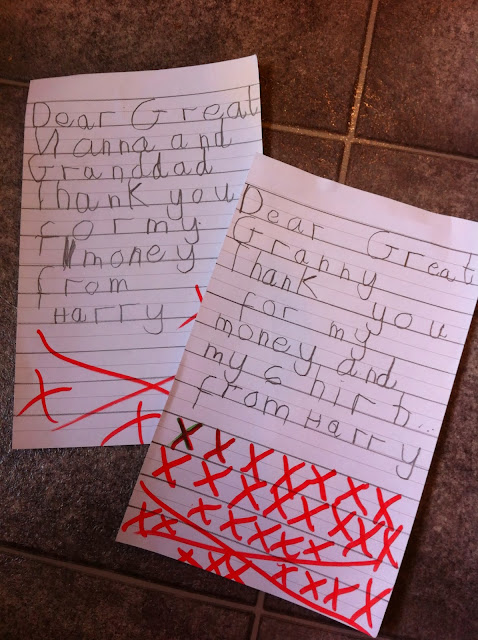 Dear Great
Nanna and
Granddad
Thank you
for my
money
from
Harry
Dear Great
Granny
Thank you
for my
money and
my
from Harry